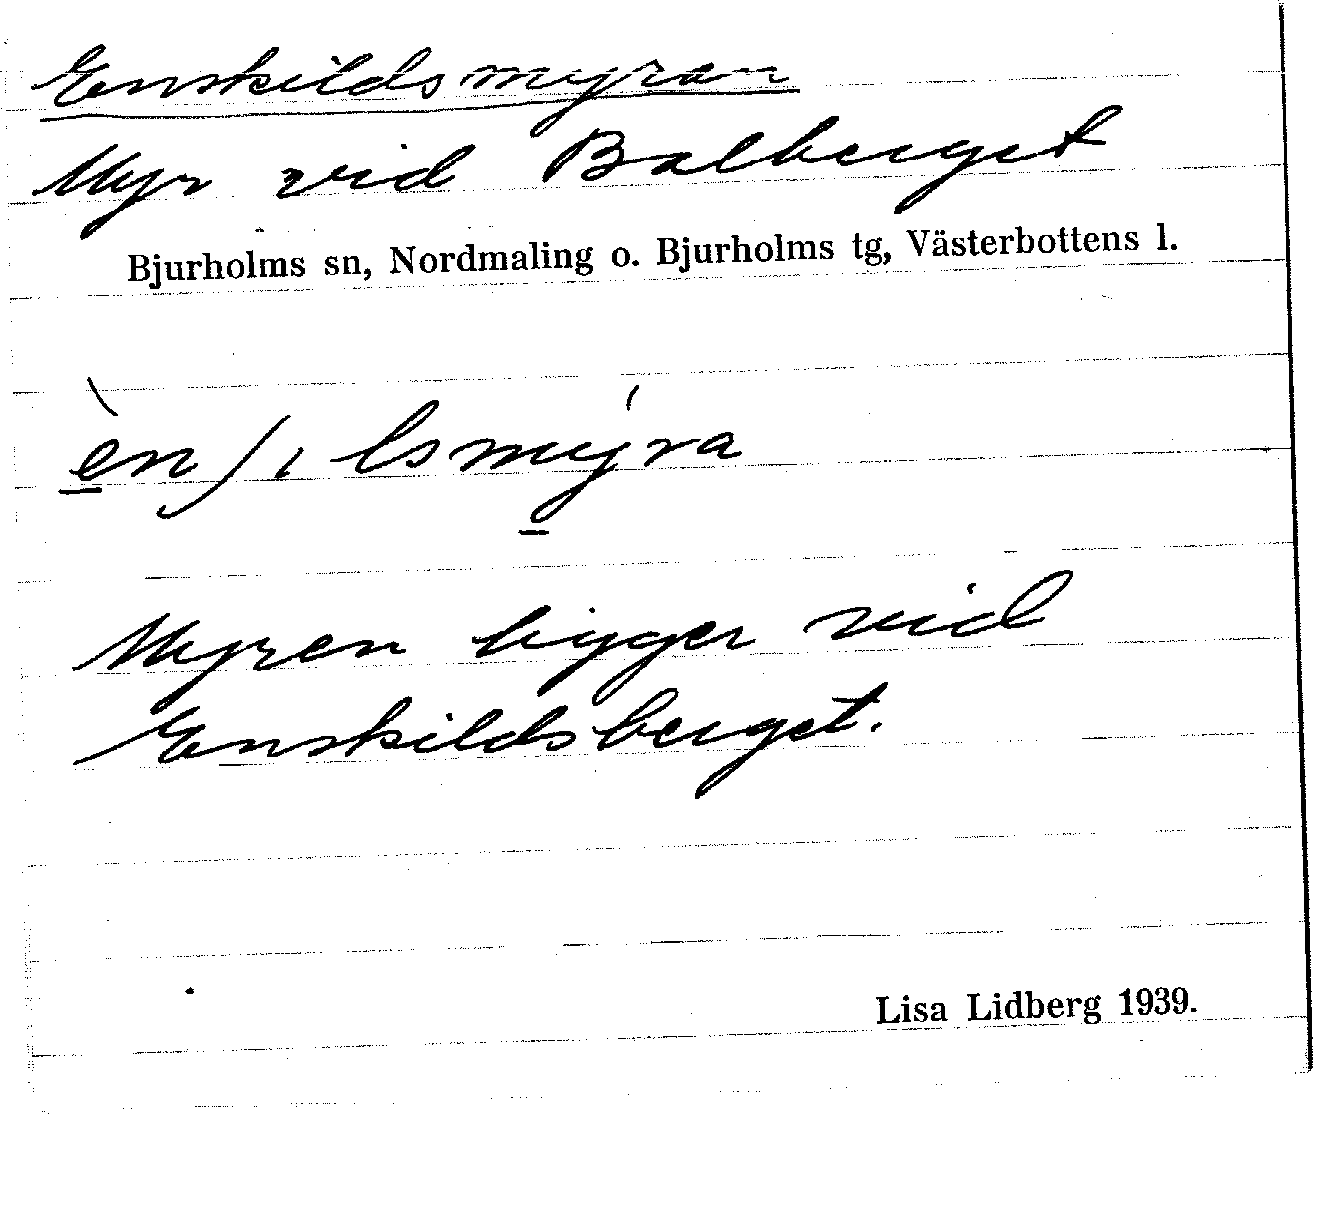 Enskildsmyran
Myr vid Balberget
Bjurholms sn, Nordmaling o. Bjurholms tg, Västerbottens l.
Myren ligger vid
Enskildsberget.
Lisa Lidberg 1939.